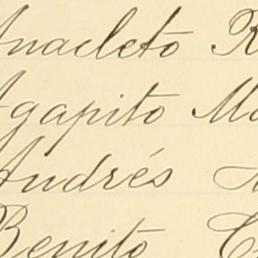 Anacleto R
Agapito Ma
Andrés
Benito